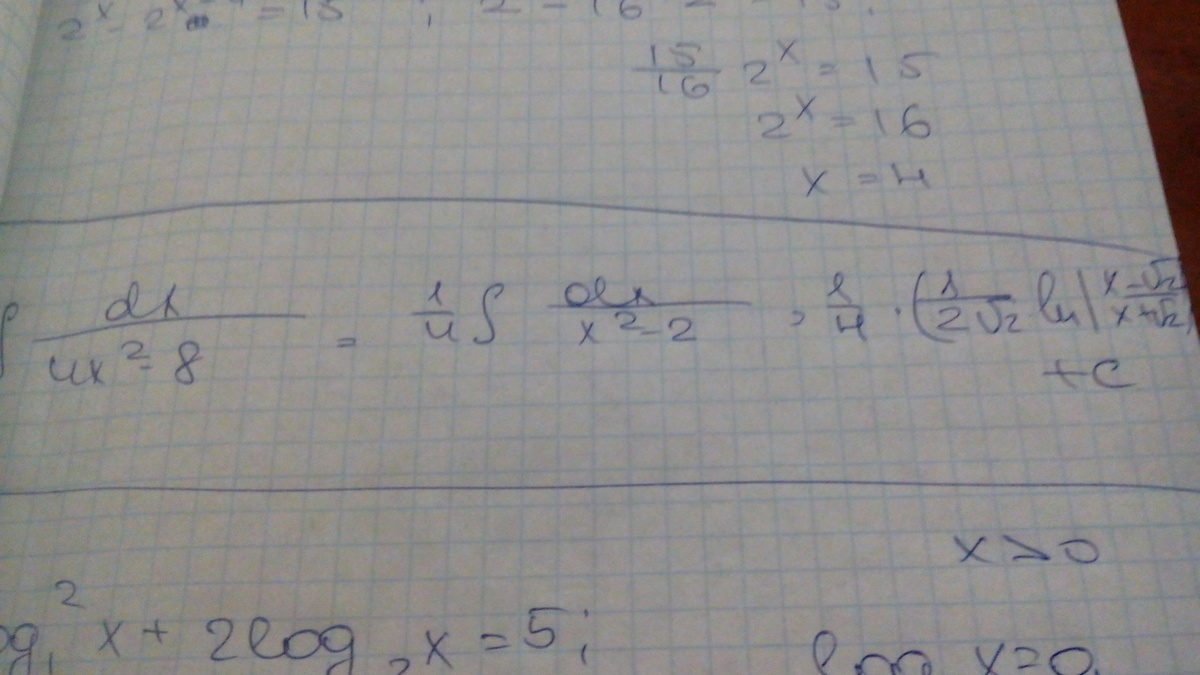 2^x - 2^x = 15 ;
15/16 2^x = 15
2^x = 16
x = 4
∫ dx/(4x² - 8) = 1/4 ∫ dx/(x² - 2) = 1/4 · (1/(2√2) ln |(x - √2)/(x + √2)|
+ C
x > 0
x + 2 log x = 5;
x = 0